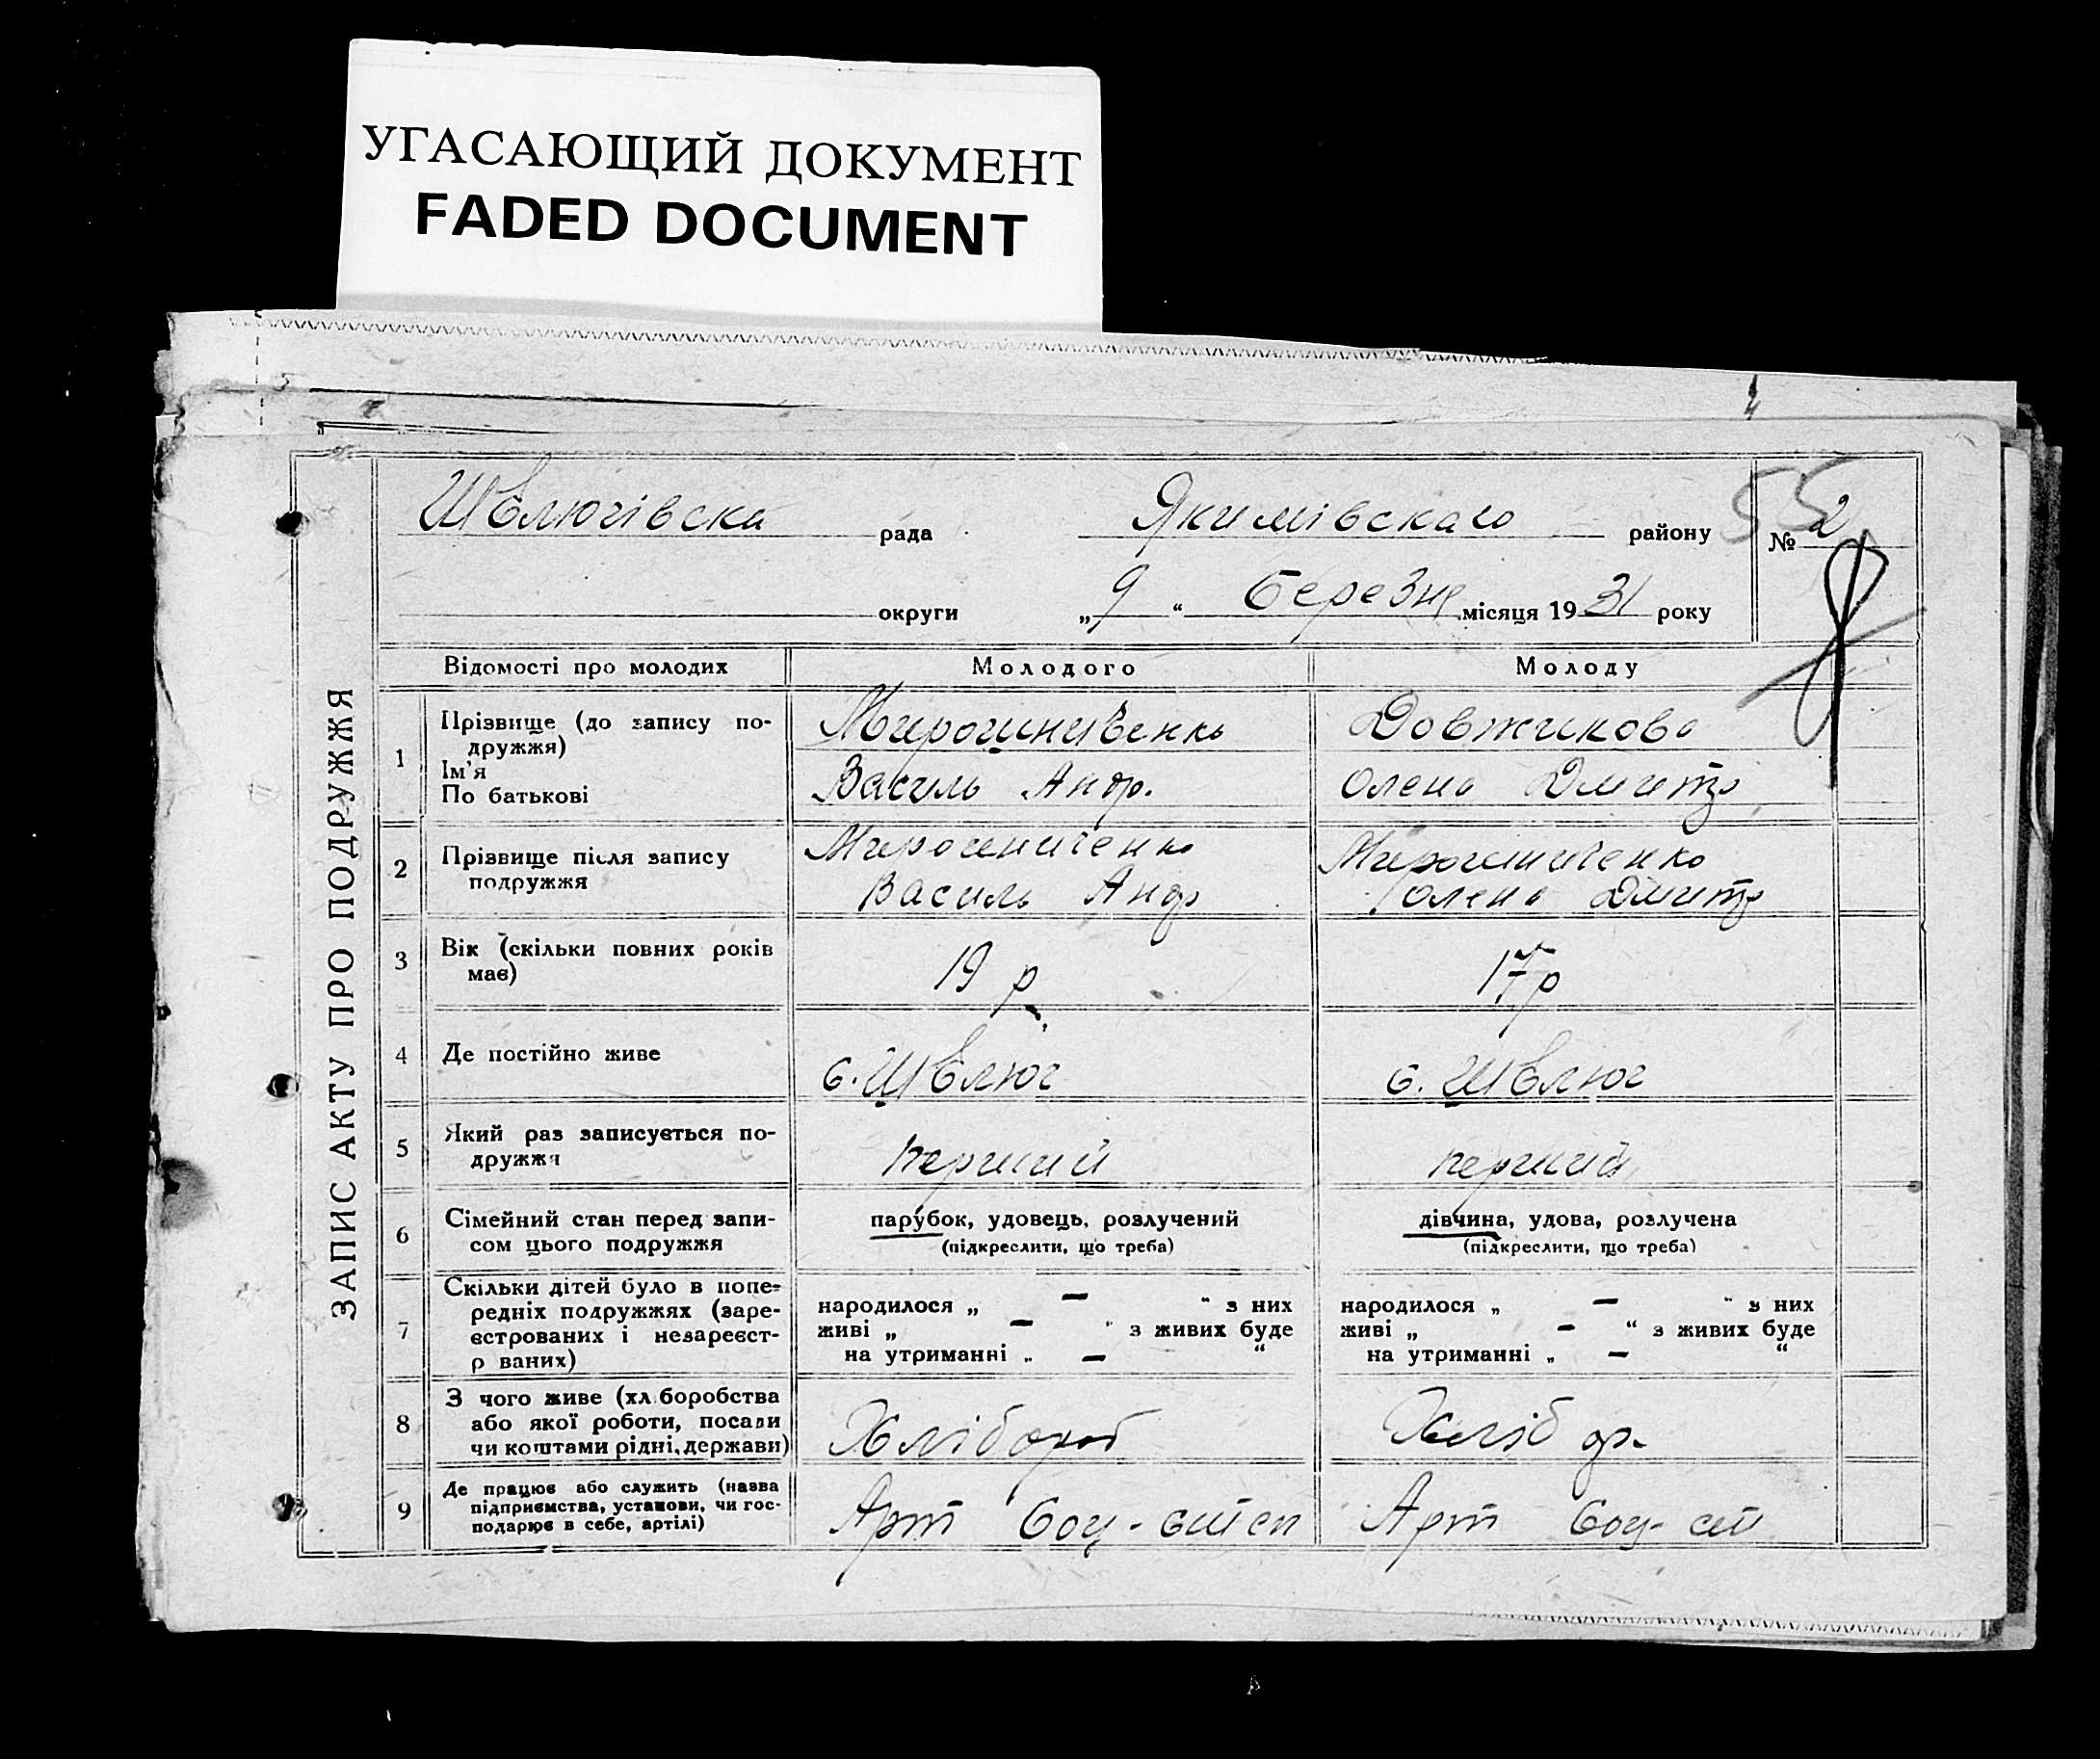 УГАСАЮЩИЙ ДОКУМЕНТ
FADED DOCUMENT
ЗАПИС АКТУ ПРО ПОДРУЖЖЯ
Шелюгівска рада Якимівскаго району № 2
55
округи „9“ Березня місяця 1931 року
Відомості про молодих Молодого Молоду
1 Прізвище (до запису по-
дружжя)
Ім'я
По батькові
Мирошниченко
Василь Андр.
Довжикова
Олена Дмитр
2 Прізвище після запису
подружжя
Мирошниченко
Василь Андр
Мирошниченко
Олена Дмитр
3 Вік (скільки повних років
має)
19 р
17 р
4 Де постійно живе
с. Шелюг
с. Шелюг
5 Який раз записується по-
дружжя
перший
перший
6 Сімейний стан перед запи-
сом цього подружжя
парубок, удовець, розлучений
(підкреслити, що треба)
дівчина, удова, розлучена
(підкреслити, що треба)
7 Скільки дітей було в попе-
редніх подружжях (заре-
єстрованих і незареєст-
р ваних)
народилося „ — “ з них
живі „ — “ з живих буде
на утриманні „ — “
народилося „ — “ з них
живі „ — “ з живих буде
на утриманні „ — “
8 З чого живе (хл боробства
або якої роботи, посади
чи коштами рідні, держави)
Хлібороб
Хліб
9 Де працює або служить (назва
підприємства, установи, чи гос-
подарює в себе, артілі)
Арт Соц-степ
Арт Соц-